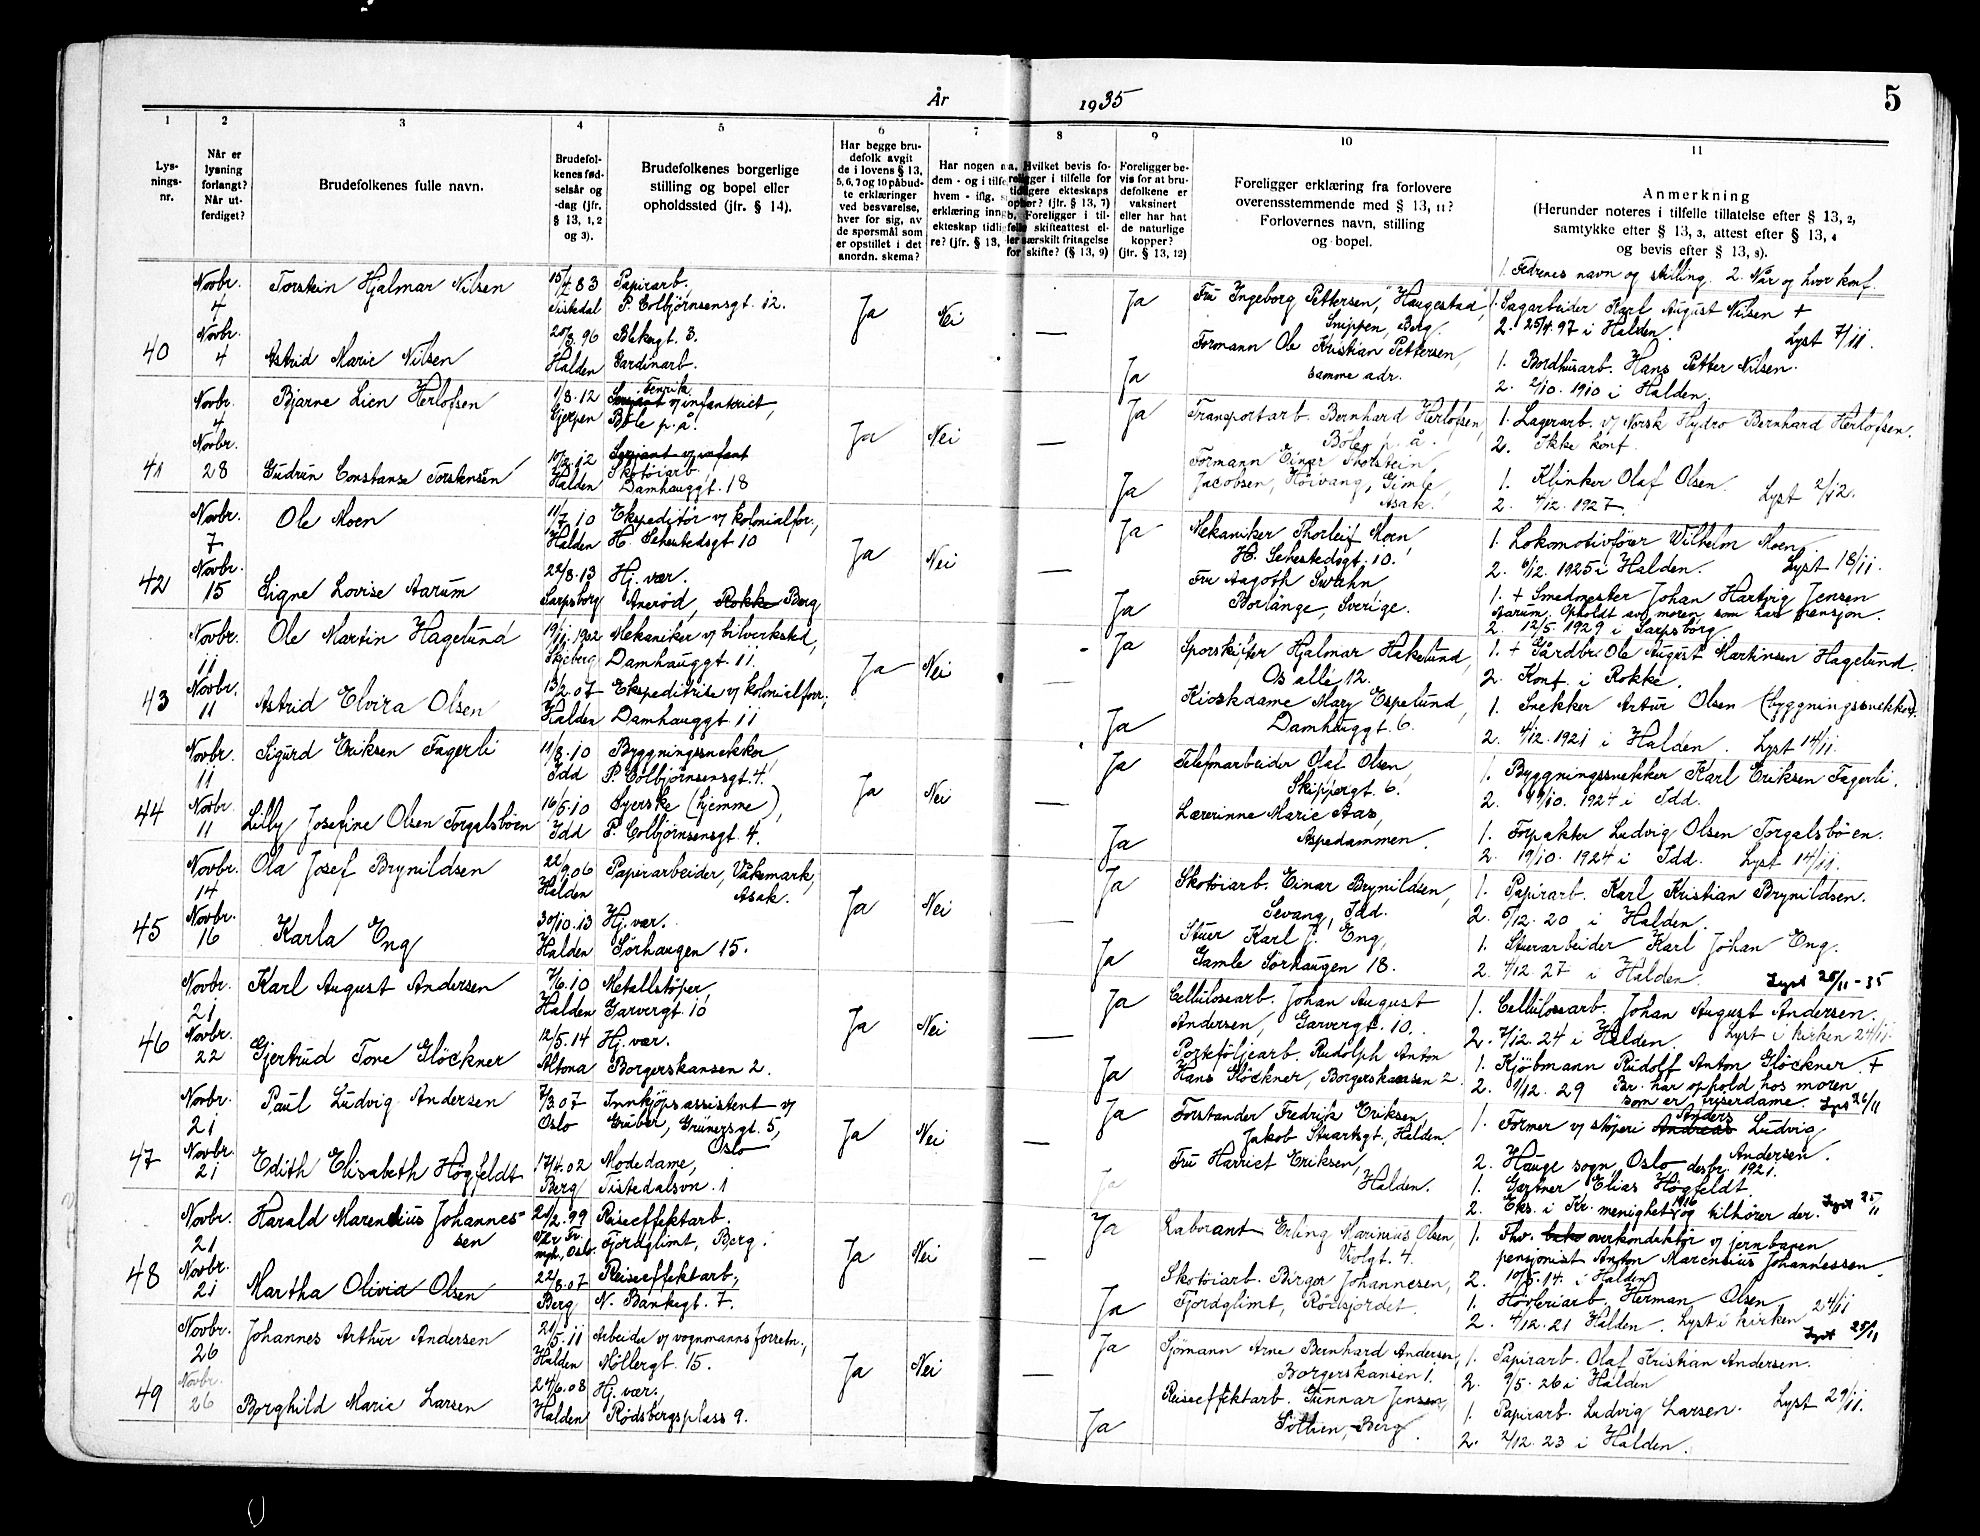 År 1935
5
1 2 3 4 5 6 7 8 9 10 11
Lys-
nings-
nr.
Når er
lysning
forlangt?
Når ut-
ferdiget?
Brudefolkenes fulle navn.
Brudefol-
kenes fød-
selsår og
-dag (jfr.
§ 13, 1, 2
og 3).
Brudefolkenes borgerlige
stilling og bopel eller
opholdssted (jfr. § 14).
Har begge bru-
defolk avgit
de i lovens § 13,
5, 6, 7 og 10 påbud-
te erklæringer
ved besvarelse,
hver for sig, av
de spørsmål som
er opstillet i det
anordn. skema?
Foreligger be-
vis for at bru-
defolkene er
vaksinert
eller har hat
de naturlige
kopper?
(jfr. § 13, 12)
Foreligger erklæring fra forlovere
overensstemmende med § 13, 11?
Forlovernes navn, stilling
og bopel.
Anmerkning
(Herunder noteres i tilfelle tillatelse efter § 13, 2,
samtykke efter § 13, 3, attest efter § 13, 4
og bevis efter § 13, 8).
1. Fedrenes navn og stilling. 2. Når og hvor konf.
40
Novbr. 4
Torstein Hjalmar Nilsen
15/4 83 Tistedal
Papirarb.
P. Colbjørnsensgt. 12.
Ja Nei — Ja
Fru Ingeborg Pettersen, "Haugestad",
Snippen, Berg.
1. Sagarbeider Karl August Nilsen +
2. 25/4. 97 i Halden. Lyst 7/11.
Novbr. 4
Astrid Marie Nilsen
20/3. 96 Halden
Blekegt. 3.
Gardinarb.
Ja
Formann Ole Kristian Pettersen,
samme adr.
1. Bordhusarb. Hans Petter Nilsen.
2. 2/10. 1910 i Halden.
41
Novbr. 4
Bjarne Lien Herlofsen
1/8. 12 Gjerpen
Fenrik v/ infanteriet,
Bøle p. å.
Ja Nei — Ja
Transportarb. Bernhard Herlofsen,
Bøle p. å.
1. Lagerarb. v/ Norsk Hydro Bernhard Herlofsen.
2. Ikke konf.
Novbr. 28
Gudrun Constanse Torstensen
Halden
Sersjant v/ infant
Skotøiarb.
Damhauggt. 18
Ja
Formann Einar Thorstein
Jacobsen, Høivang, Gimle,
Asak.
1. Klinker Olaf Olsen.
2. 4/12. 1927. Lyst 2/12.
42
Novbr. 7
Ole Moen
11/7. 10 Halden
Ekspeditør v/ kolonialfor.,
H. Sehestedsgt 10
Ja Nei — Ja
Mekaniker Thorleif Moen,
H. Sehestedsgt. 10.
1. Lokomotivfører Wilhelm Moen.
2. 6/12. 1925 i Halden. Lyst 18/11.
Novbr. 15
Signe Lovise Aarum
22/8. 13 Sarpsborg
Hj. vær.
Anerød, Rokke Berg
Ja
Fru Aagoth Swahn
Borlänge, Sverige.
1. + Smedmester Johan Hartvig Jensen
Aarum. Opholdt av moren, som har pensjon.
2. 12/5. 1929 i Sarpsborg.
43
Novbr. 11
Ole Martin Hagelund
19/11. 1902 Skjeberg
Mekaniker v/ bilverksted,
Damhauggt. 11.
Ja Nei — Ja
Sporskifter Hjalmar Hakelund,
Os alle 12.
1. + Gårdbr. Ole August Martinsen Hagelund.
2. Konf. i Rokke.
Novbr. 11
Astrid Elvira Olsen
13/2. 07 Halden
Ekspeditrise v/ kolonialforr.,
Damhauggt 11
Ja
Kioskdame Mary Espelund,
Damhauggt. 6.
1. Snekker Artur Olsen (bygningssnekker).
2. 4/12. 1921 i Halden. Lyst 14/11.
44
Novbr. 11
Sigurd Eriksen Fagerli
11/8. 10 Idd
Bygningssnekker,
P. Colbjørnsensgt. 4.
Ja Nei — Ja
Telefonarbeider Olaf Olsen,
Skippergt. 6.
1. Bygningssnekker Karl Eriksen Fagerli.
2. 19/10. 1924 i Idd.
Novbr. 11
Lilly Josefine Olsen Torgalsbøen
16/5. 10 Idd
Syerske (hjemme),
P. Colbjørnsensgt. 4.
Ja
Lærerinne Marie Aas,
Aspedammen.
1. Forpakter Ludvig Olsen Torgalsbøen.
2. 19/10. 1924 i Idd. Lyst 14/11.
45
Novbr. 14
Ola Josef Brynildsen
22/9. 06 Halden
Papirarbeider, Vakemark,
Asak.
Ja Nei — Ja
Skotøiarb. Einar Brynildsen,
Sevang, Idd.
1. Papirarb. Karl Kristian Brynildsen.
2. 5/12. 20 i Halden.
Novbr. 16
Karla Eng
30/10. 13 Halden
Hj. vær.
Sørhaugen 15.
Ja
Stuer Karl J. Eng,
Gamle Sørhaugen 18.
1. Stuerarbeider Karl Johan Eng.
2. 4/12. 27 i Halden. Lyst 25/11-35
46
Novbr. 21
Karl August Andersen
7/6. 10 Halden
Metallstøper
Garvergt. 10
Ja Nei — Ja
Cellulosearb. Johan August
Andersen, Garvergt. 10.
1. Cellulosearb. Johan August Andersen.
2. 7/12. 24 i Halden. Lyst i kirken 24/11.
Novbr. 22
Gjertrud Tove Glöckner
12/5. 14 Altona
Hj. vær.
Borgerskansen 2.
Ja
Porteføljearb. Rudolph Anton
Hans Glöckner, Borgerskansen 2.
1. Kjøbmann Rudolf Anton Glöckner. +
2. 1/12. 29 Br. har ophold hos moren
som er friserdame. Lyst 26/11
47
Novbr. 21
Paul Ludvig Andersen
7/3. 07 Oslo
Innkjøpsassistent v/
Gruber, Grünersgt. 5,
Oslo
Ja Nei — Ja
Forstander Fredrik Eriksen,
Jakob Stuartsgt, Halden.
1. Former v/ støperi Andreas Anders Ludvig
Andersen.
2. Hauge sogn, Oslo, desbr. 1921.
Novbr. 21
Edith Elisabeth Høgfeldt
17/4. 02 Berg
Motedame,
Tistedalsvn. 1
Ja
Fru Harriet Eriksen,
Halden.
1. Gartner Elias Høgfeldt.
2. Eks. i Kr. menighet 1916 og tilhører der. Lyst 25/11
48
Novbr. 21
Harald Marentius Johannes-
sen
21/2. 99 Vår Fr. mgh., Oslo.
Reiseeffektarb.
Fjordglimt, Berg.
Ja Nei — Ja
Laborant Erling Marinius Olsen,
Volgt. 4.
1. Fhv. overkonduktør v/ jernbanen
pensjonist Anton Marentius Johannessen.
2. 10/5. 14. i Halden
Novbr. 21
Martha Olivia Olsen
22/8. 07 Berg
Reiseeffektarb,
N. Bankegt. 7.
Ja
Skotøiarb. Birger Johannesen,
Fjordglimt, Rødsjordet.
1. Høvleriarb. Herman Olsen
2. 4/12. 21 Halden. Lyst i kirken 24/11
Lyst 25/11
49
Novbr. 26
Johannes Arthur Andersen
21/5. 11 Halden
Arbeider v/ vognmannsforretn.,
Møllergt. 15.
Ja Nei — Ja
Sjømann Arne Bernhard Andersen,
Borgerskansen 1.
1. Papirarb. Olaf Kristian Andersen.
2. 9/5. 26 i Halden
Novbr. 26
Borghild Marie Larsen
24/6. 08 Halden
Hj. vær.,
Rødsbergsplass 9.
Ja
Reiseeffektarb. Gunnar Jensen,
Sollien, Berg.
1. Papirarb. Ludvig Larsen. Lyst 29/11.
2. 2/12. 23 i Halden.